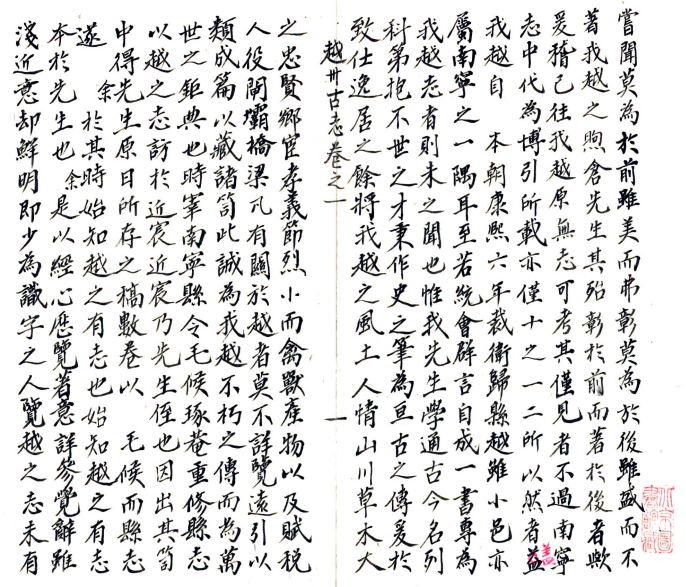 嘗聞莫為於前雖美而弗彰莫為於後雖盛而不
著我越之煦倉先生其殆彰於前而著於後者歟
爰稽已往我越原無志可考其僅見者不過南寧
志中代為博引所載亦僅十之一二所以然者蓋
我越自 本朝康熙六年裁衛歸縣越雖小邑亦
屬南寧之一隅耳至若統會群言自成一書專為
我越志者則未之聞也惟我先生學通古今名列
科第抱不世之才秉作史之筆為亘古之傳爰於
致仕逸居之餘將我越之風土人情山川草木大
越州古志卷之一
一
之忠賢鄉宦孝義節烈小而禽獸產物以及賦稅
人役閘壩橋梁凡有關於越者莫不詳覽遠引以
類成篇以藏諸笥此誠為我越不朽之傳而為萬
世之鉅典也時宰南寧縣令毛候琢菴重修縣志
以越之志訪於近宸近宸乃先生侄也因出其笥
中得先生原日所存之稿數卷以 毛候而縣志
遂 余於其時始知越之有志也始知越之有志
本於先生也余是以經心歷覽者意詳參覺辭雖
淺近意却鮮明即少為識字之人覽越之志未有